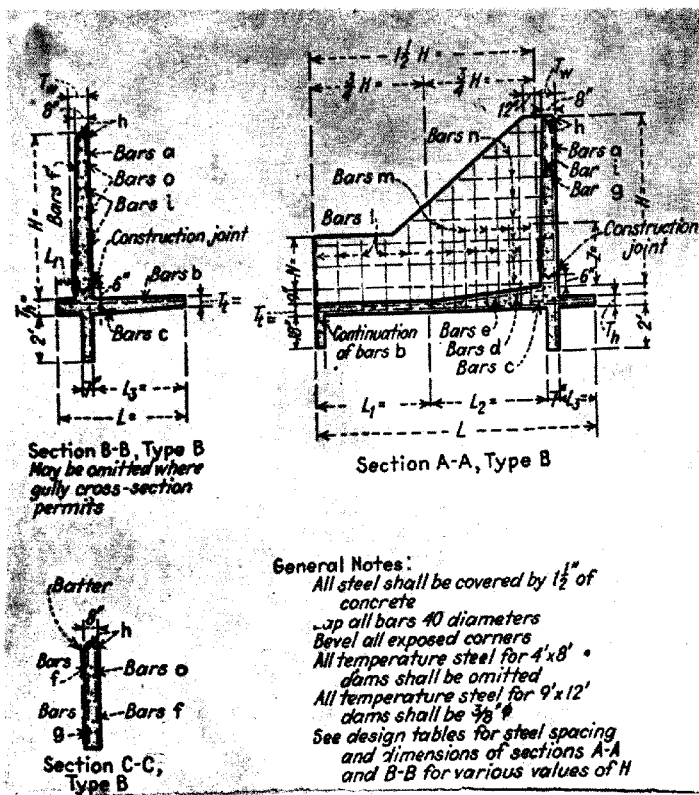 T_w
8"
h
Bars a
Bars f
Bars o
Bars i
H=
Construction joint
L_1
6"
Bars b
T_t=
T_h=
2'
Bars c
L_3
L=
Section B-B, Type B
May be omitted where
gully cross-section
permits
1 1/2 H=
T_w
3/4 H=
3/4 H=
12"
8"
h
Bars n
Bars a
Bar i
Bar g
Bars m
H=
Bars l
Construction
joint
6"
T_t=
Continuation
of bars b
Bars e
Bars d
Bars c
T_h
2'
L_1
L_2
L_3=
L
Section A-A, Type B
Batter
8"
h
Bars
f
Bars o
Bars
g
Bars f
Section C-C,
Type B
General Notes:
All steel shall be covered by 1 1/2" of
concrete
Lap all bars 40 diameters
Bevel all exposed corners
All temperature steel for 4'x8'
dams shall be omitted
All temperature steel for 9'x12'
dams shall be 3/8" ϕ
See design tables for steel spacing
and dimensions of sections A-A
and B-B for various values of H